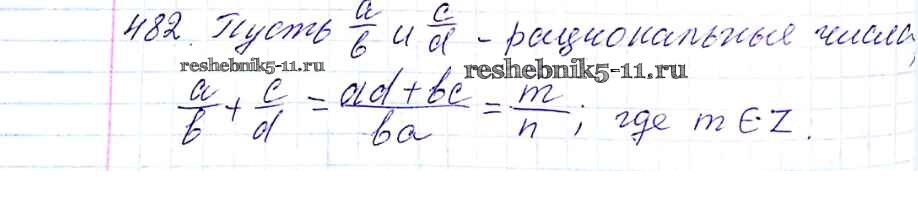 482. Пусть a/b и c/d - рациональные числа,
reshebnik5-11.ru reshebnik5-11.ru
a/b + c/d = (ad + bc)/ba = m/n; где m ∈ Z.